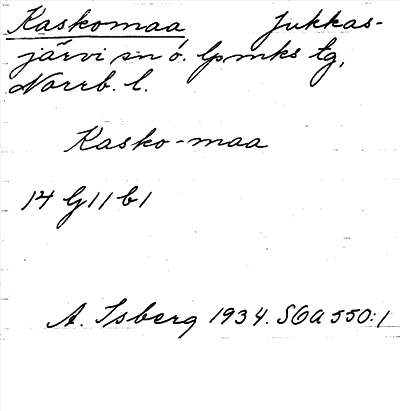 Kaskomaa Jukkas-
järvi sn o. lpmks tg,
Norrb. l.
Kasko-maa
14 G11 b1
A. Isberg 1934. SOA 550:1